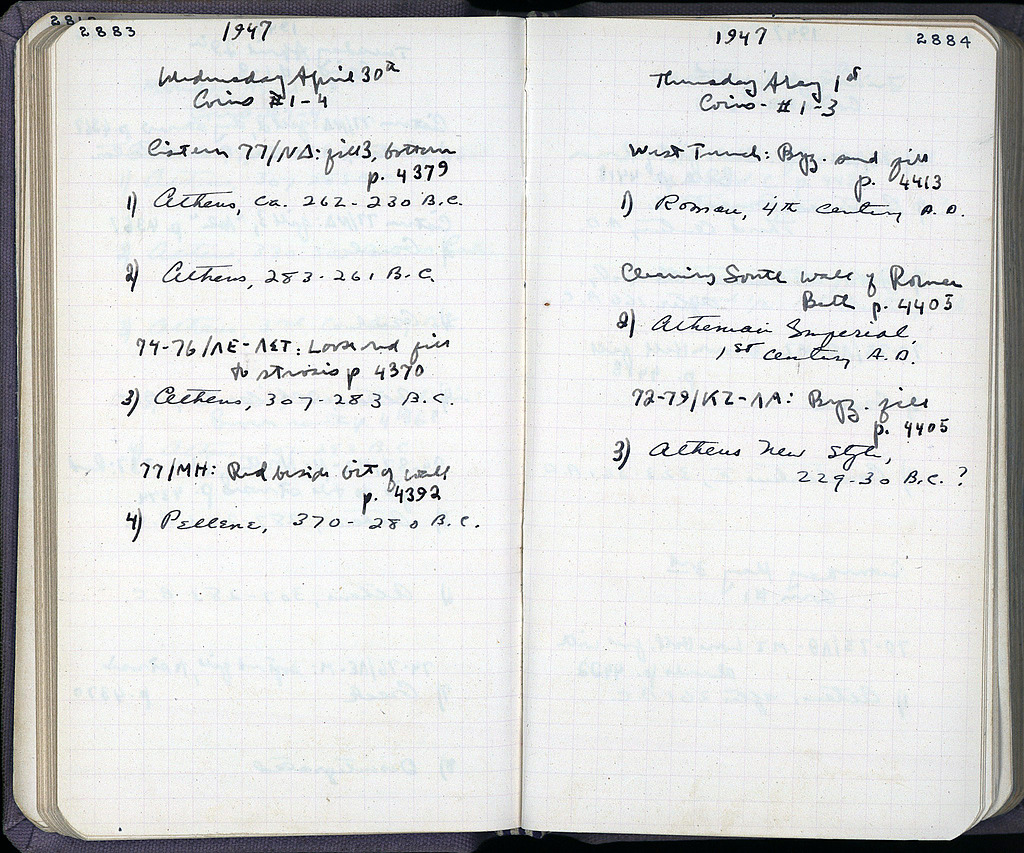 2883
1947
Wednesday April 30th
Coins #1-4
Cistern 77/ΝΔ: fill 3, bottom
p. 4379
1) Athens, ca. 262-230 B.C.
2) Athens, 283-261 B.C.
74-76/ΛΕ-ΛΣΤ: Loose red fill
to strosis p 4370
3) Athens, 307-283 B.C.
77/ΜΗ: Red beside bit of wall
p. 4392
4) Pellene, 370-280 B.C.
1947
2884
Thursday May 1st
Coins - #1-3
West Trench: Byz. sand fill
p. 4413
1) Roman, 4th century A.D.
Cleaning South wall of Roman
Bath p. 4405
2) Athenian Imperial,
1st century A.D.
72-79/ΚΖ-ΛΑ: Byz. fill
p. 4405
3) Athens New Style,
229-30 B.C.?